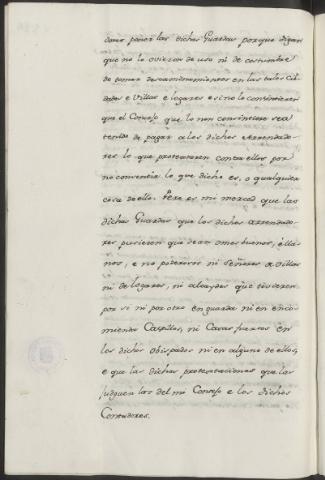 dare poner las dichas Guardas porque digan
que no lo ovieron de uso ni de costumbre
de tomar descaminamientos en las tales Cib-
dades e Villas e logares e si no lo consintieren
que el Concejo que lo non consintiere sea
tenudo de pagar a los dichos arrendado-
res lo que protestaren contra ellos por
no consentir lo que dicho es, o qualquier
cosa de ello. Pero es mi merced que las
dichas Guardas que los dichos arrendado-
res pusieren que sean omes buenos, e lla-
nos, e no poderosos ni Señores de Villas
ni de logares, ni alcaydes que tovieren
por si ni por otro en guarda ni en enco-
mienda Castillos, ni Casas fuertes en
los dichos obispados ni en alguno de ellos,
e que las dichas protestaciones que las
judguen los del mi Consejo e los dichos
Contadores.